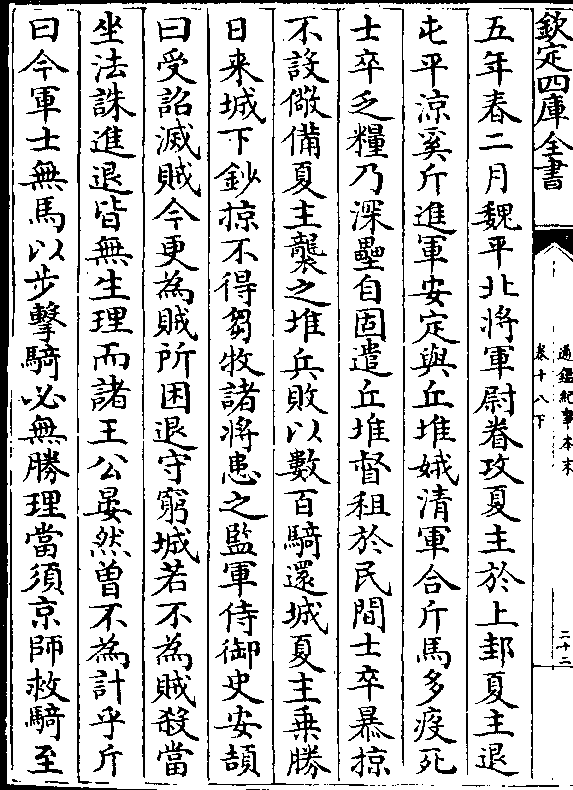 欽定四庫全書
通鑑紀事本末
卷十八下
二十三
五年春二月魏平北將軍尉眷攻夏主於上邽夏主退
屯平涼奚斤進軍安定與丘堆娥清軍合斤馬多疫死
士卒乏糧乃深壘自固遣丘堆督租於民間士卒暴掠
不設儆備夏主襲之堆兵敗以數百騎還城夏主乗勝
日来城下鈔掠不得芻牧諸將患之監軍侍御史安頡
曰受詔滅賊今更為賊所困退守窮城若不為賊殺當
坐法誅進退皆無生理而諸王公晏然曾不為計乎斤
曰今軍士無馬以步擊騎必無勝理當須京師救騎至